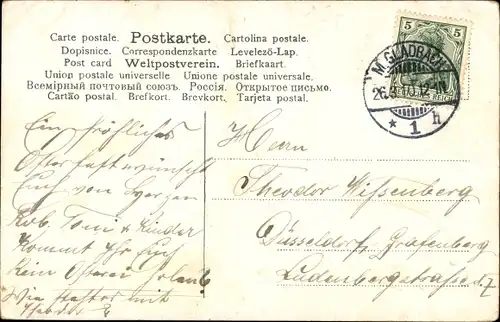 Carte postale. Postkarte. Cartolina postale.
Dopisnice. Correspondenzkarte Levelező-Lap.
Post card Weltpostverein. Briefkaart.
Union postale universelle Unione postale universale.
Всемірный почтовый союзъ. Россія. Открытое письмо.
Cartão postal. Brefkort. Brevkort. Tarjeta postal.
5 5
M. GLADBACH
12-1N
* 1 h
Ein fröhliches
Osterfest wünscht
Euch von Herzen
Rob. Toni & Kinder
Kommt Ihr Euch
kein Osterei holen
Wie
Herrn
Theodor Wissenberg
Düsseldorf Grafenberg